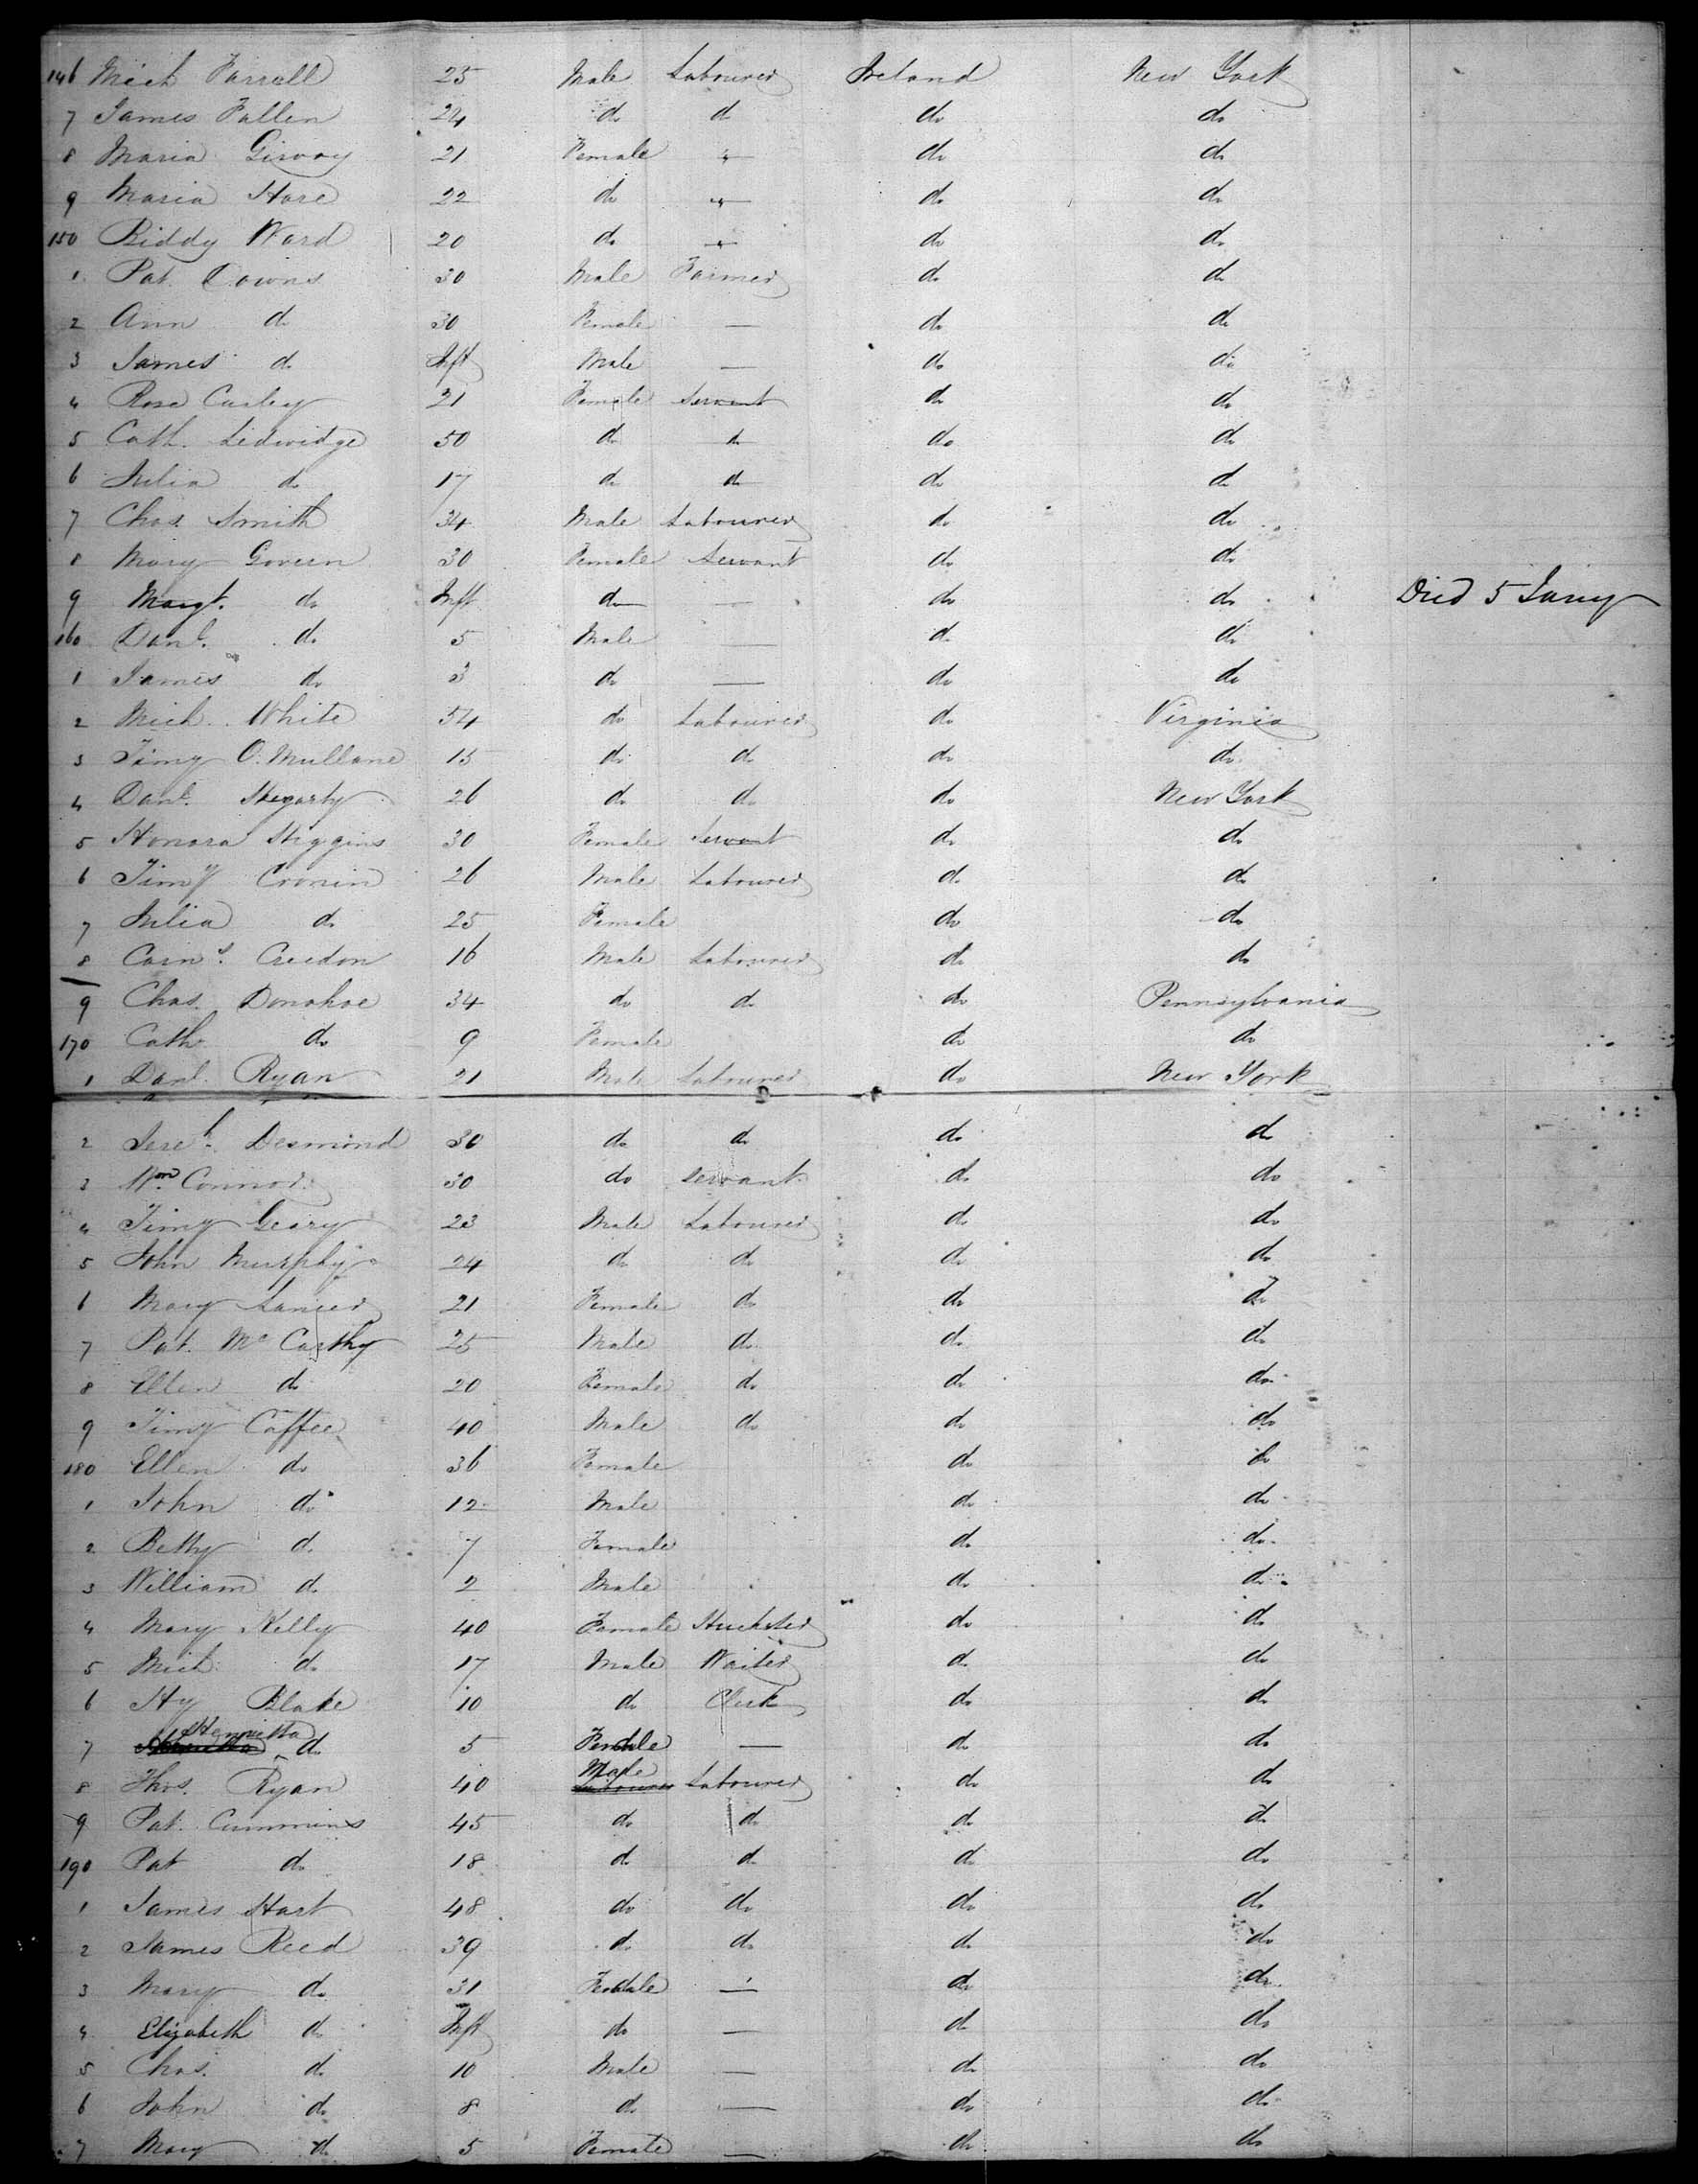 146 Mich Farrell 25 Male Labourer Ireland New York
7 James Fallen 24 do do do do
8 Maria Girvoy 21 Female " do do
9 Maria Hare 22 do " do do
150 Biddy Ward 20 do " do do
1 Pat. Downs 30 Male Farmer do do
2 Ann do 30 Female — do do
3 James do Inft Male — do do
4 Rose Curley 21 Female Servant do do
5 Cath. Ledwidge 50 do do do do
6 Julia do 17 do do do do
7 Chas. Smith 34 Male Labourer do do
8 Mary Govern 30 Female Servant do do
9 Margt. do Inft do — do do Died 5 Jany
160 Danl. do 5 Male — do do
1 James do 3 do — do do
2 Mich. White 54 do Labourer do Virginia
3 Timy O.Mullane 15 do do do do
4 Danl. Hegarty 26 do do do New York
5 Honora Higgins 30 Female Servant do do
6 Timy Cronin 26 Male Labourer do do
7 Julia do 25 Female do do
8 Corns. Creedon 16 Male Labourer do do
9 Chas. Donohoe 34 do do do Pennsylvania
170 Cath. do 9 Female do do
1 Danl. Ryan 21 Male Labourer do New York
2 Jereh. Desmond 30 do do do do
3 Wm. Connor 30 do servant do do
4 Timy Geary 23 Male Labourer do do
5 John Murphy 24 do do do do
6 Mary Lancer 21 Female do do do
7 Pat. McCarthy 25 Male do do do
8 Ellen do 20 Female do do do
9 Timy Coffee 40 Male do do do
180 Ellen do 36 Female do do
1 John do 12 Male do do
2 Betty do 7 Female do do
3 William do 2 Male do do
4 Mary Kelly 40 Female Huckster do do
5 Mich do 17 Male Waiter do do
6 Hy Blake 10 do Clerk do do
7 Henrietta do 5 Female — do do
8 Thos. Ryan 40 Male Labourer do do
9 Pat. Cummins 45 do do do do
190 Pat do 18 do do do do
1 James Hart 48 do do do do
2 James Reed 39 do do do do
3 Mary do 31 Female — do do
4 Elizabeth do Inft do — do do
5 Chas. do 10 Male — do do
6 John do 8 do — do do
7 Mary do 5 Female — do do